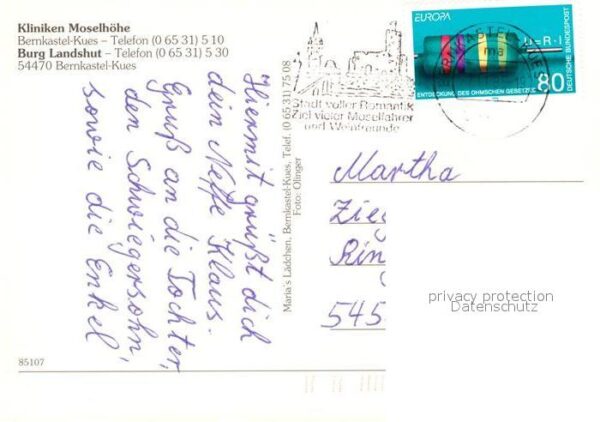 Kliniken Moselhöhe
Bernkastel-Kues – Telefon (0 65 31) 5 10
Burg Landshut – Telefon (0 65 31) 5 30
54470 Bernkastel-Kues
Hiermit grüßt dich
dein Neffe Klaus.
Gruß an die Tochter,
den Schwiegersohn,
sowie die Enkel
85107
Maria's Lädchen, Bernkastel-Kues, Telef. (0 65 31) 75 08
Foto: Olinger
Stadt voller Romantik
Ziel vieler Moselfahrer
und Weinfreunde
EUROPA
U=R·I
ma
80
DEUTSCHE BUNDESPOST
ENTDECKUNG DES OHMSCHEN GESETZES
Martha
Zieg
Rin
545
privacy protection
Datenschutz